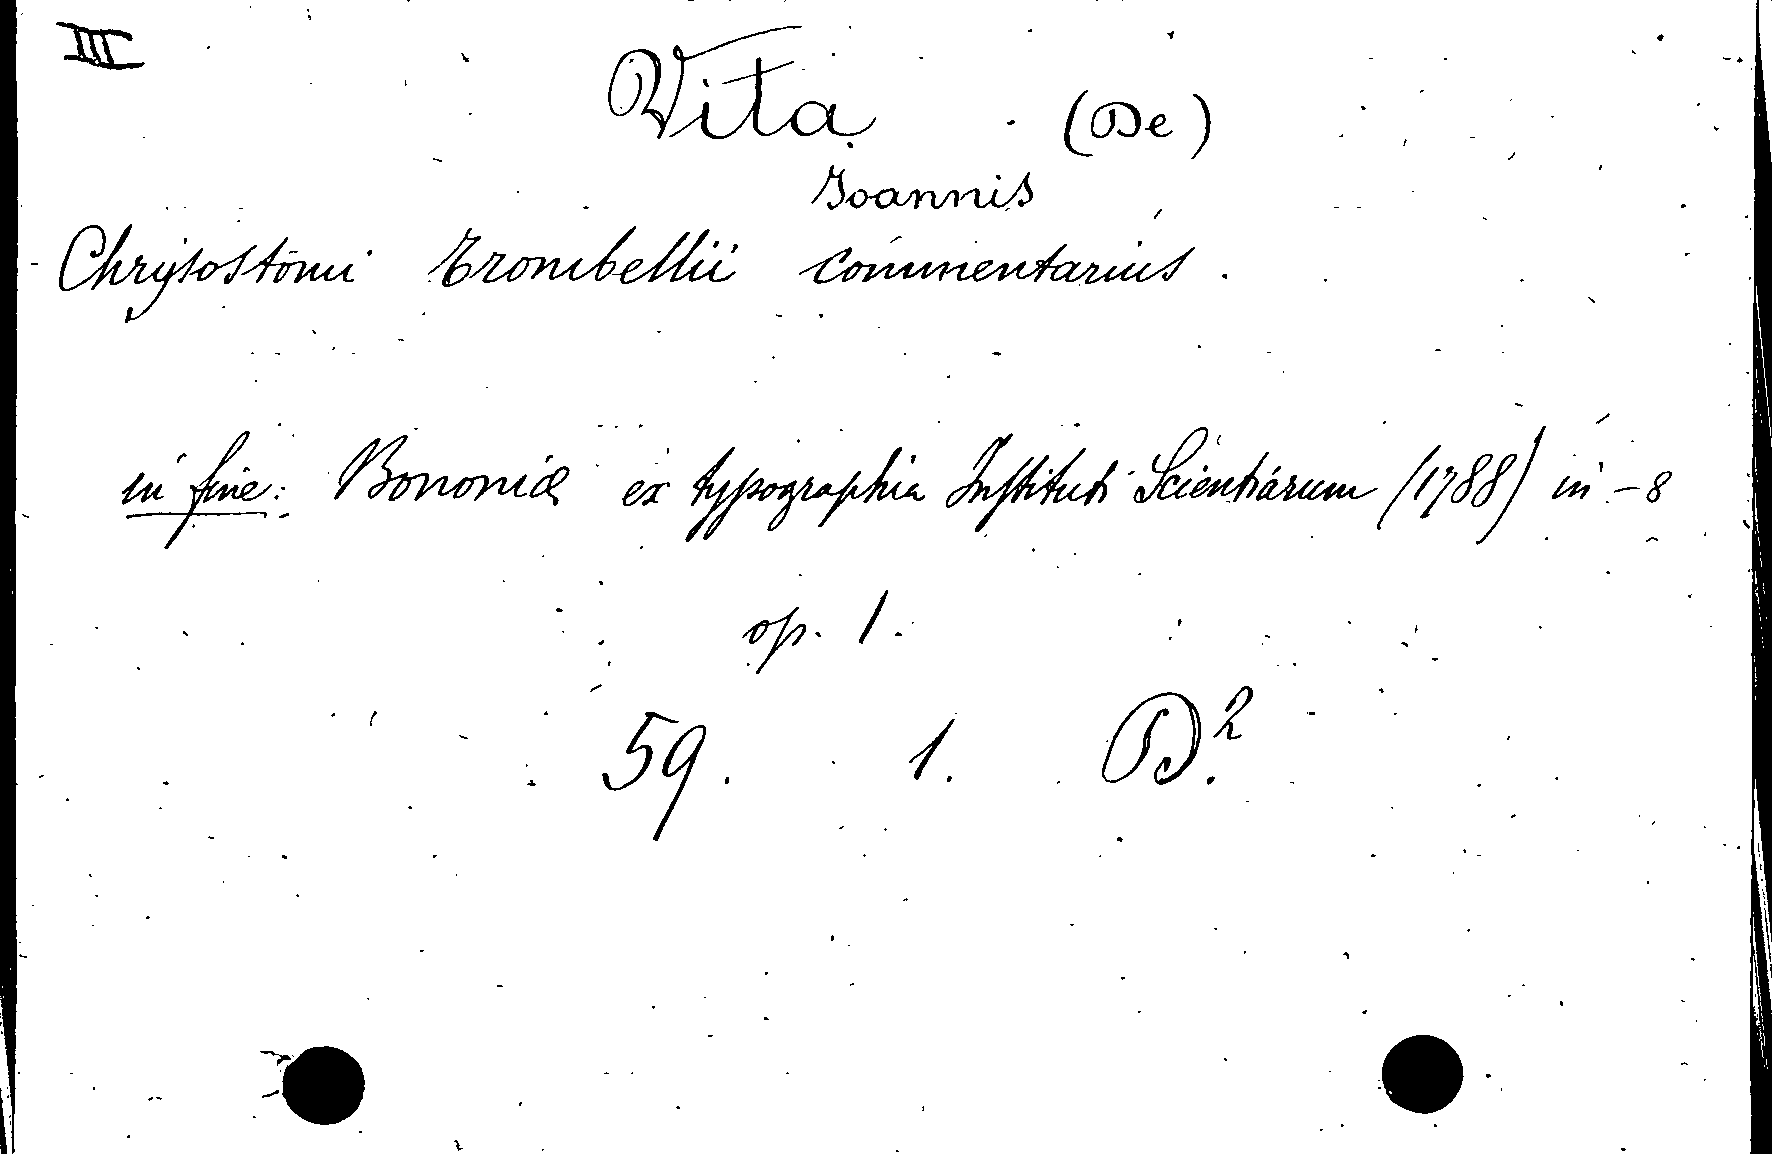 III
Vita (De)
Ioannis
Chrysostomi Trombellii commentarius.
in fine: Bononiæ ex typographia Instituti Scientiarum (1788) in-8
op. 1.
59. 1. D.²